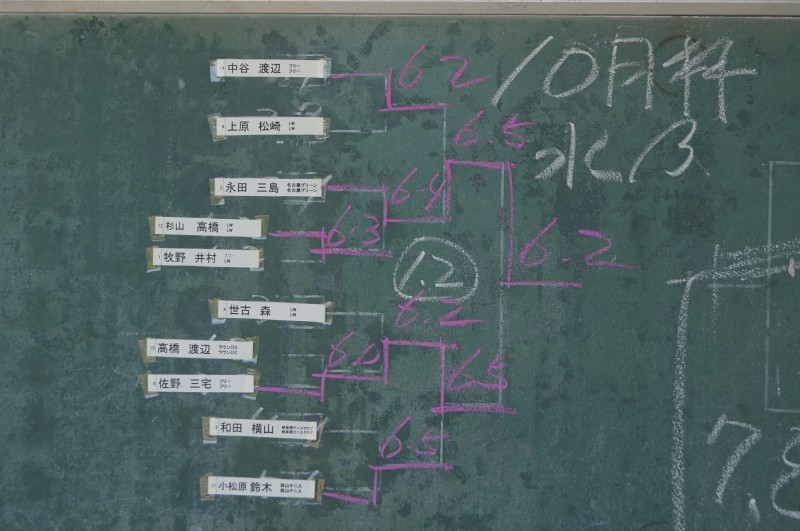 10月杯
水B
中谷 渡辺 フリー フリー
6 2
上原 松崎 LW LW
6.5
永田 三島 名古屋グリーン 名古屋グリーン
6.4
杉山 高橋 LW LW
6.3
6.2
牧野 井村 フリー LW
1.2
世古 森 LW LW
6.2
高橋 渡辺 ラウンジC ラウンジC
6.0
佐野 三宅 フリー フリー
6.5
和田 横山
6.5
小松原 鈴木
7,8